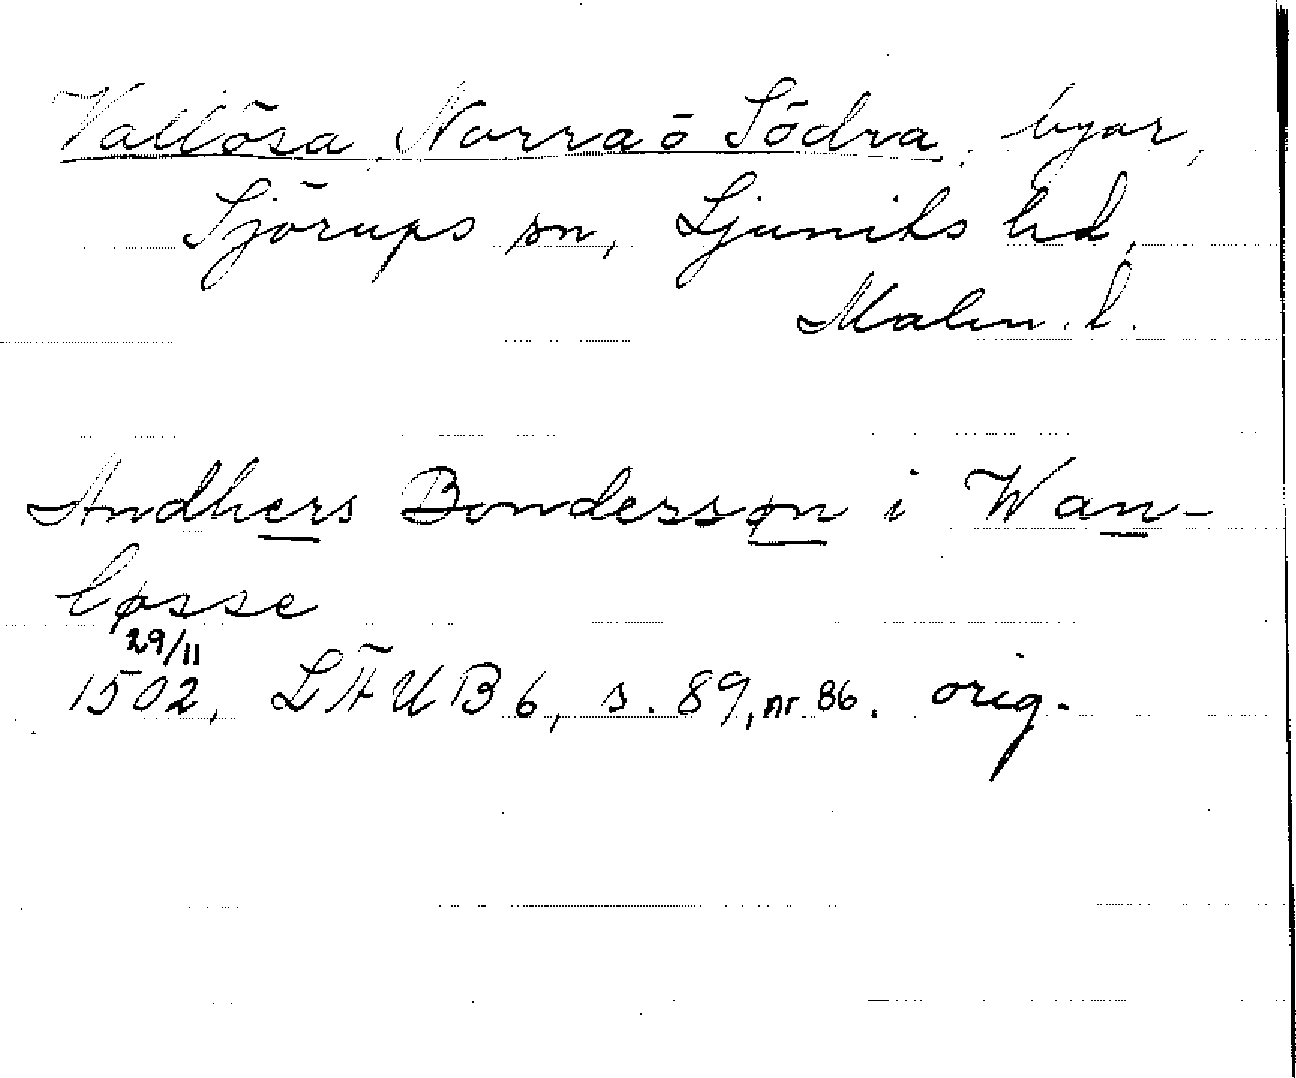 Vallösa, Norra o Södra, byar,
Sjörups sn, Ljunits hd,
Malm. l.
Andhers Bondersson i Wan-
løsse
29/11
1502, LÄUB 6, s. 89, nr 86. orig.